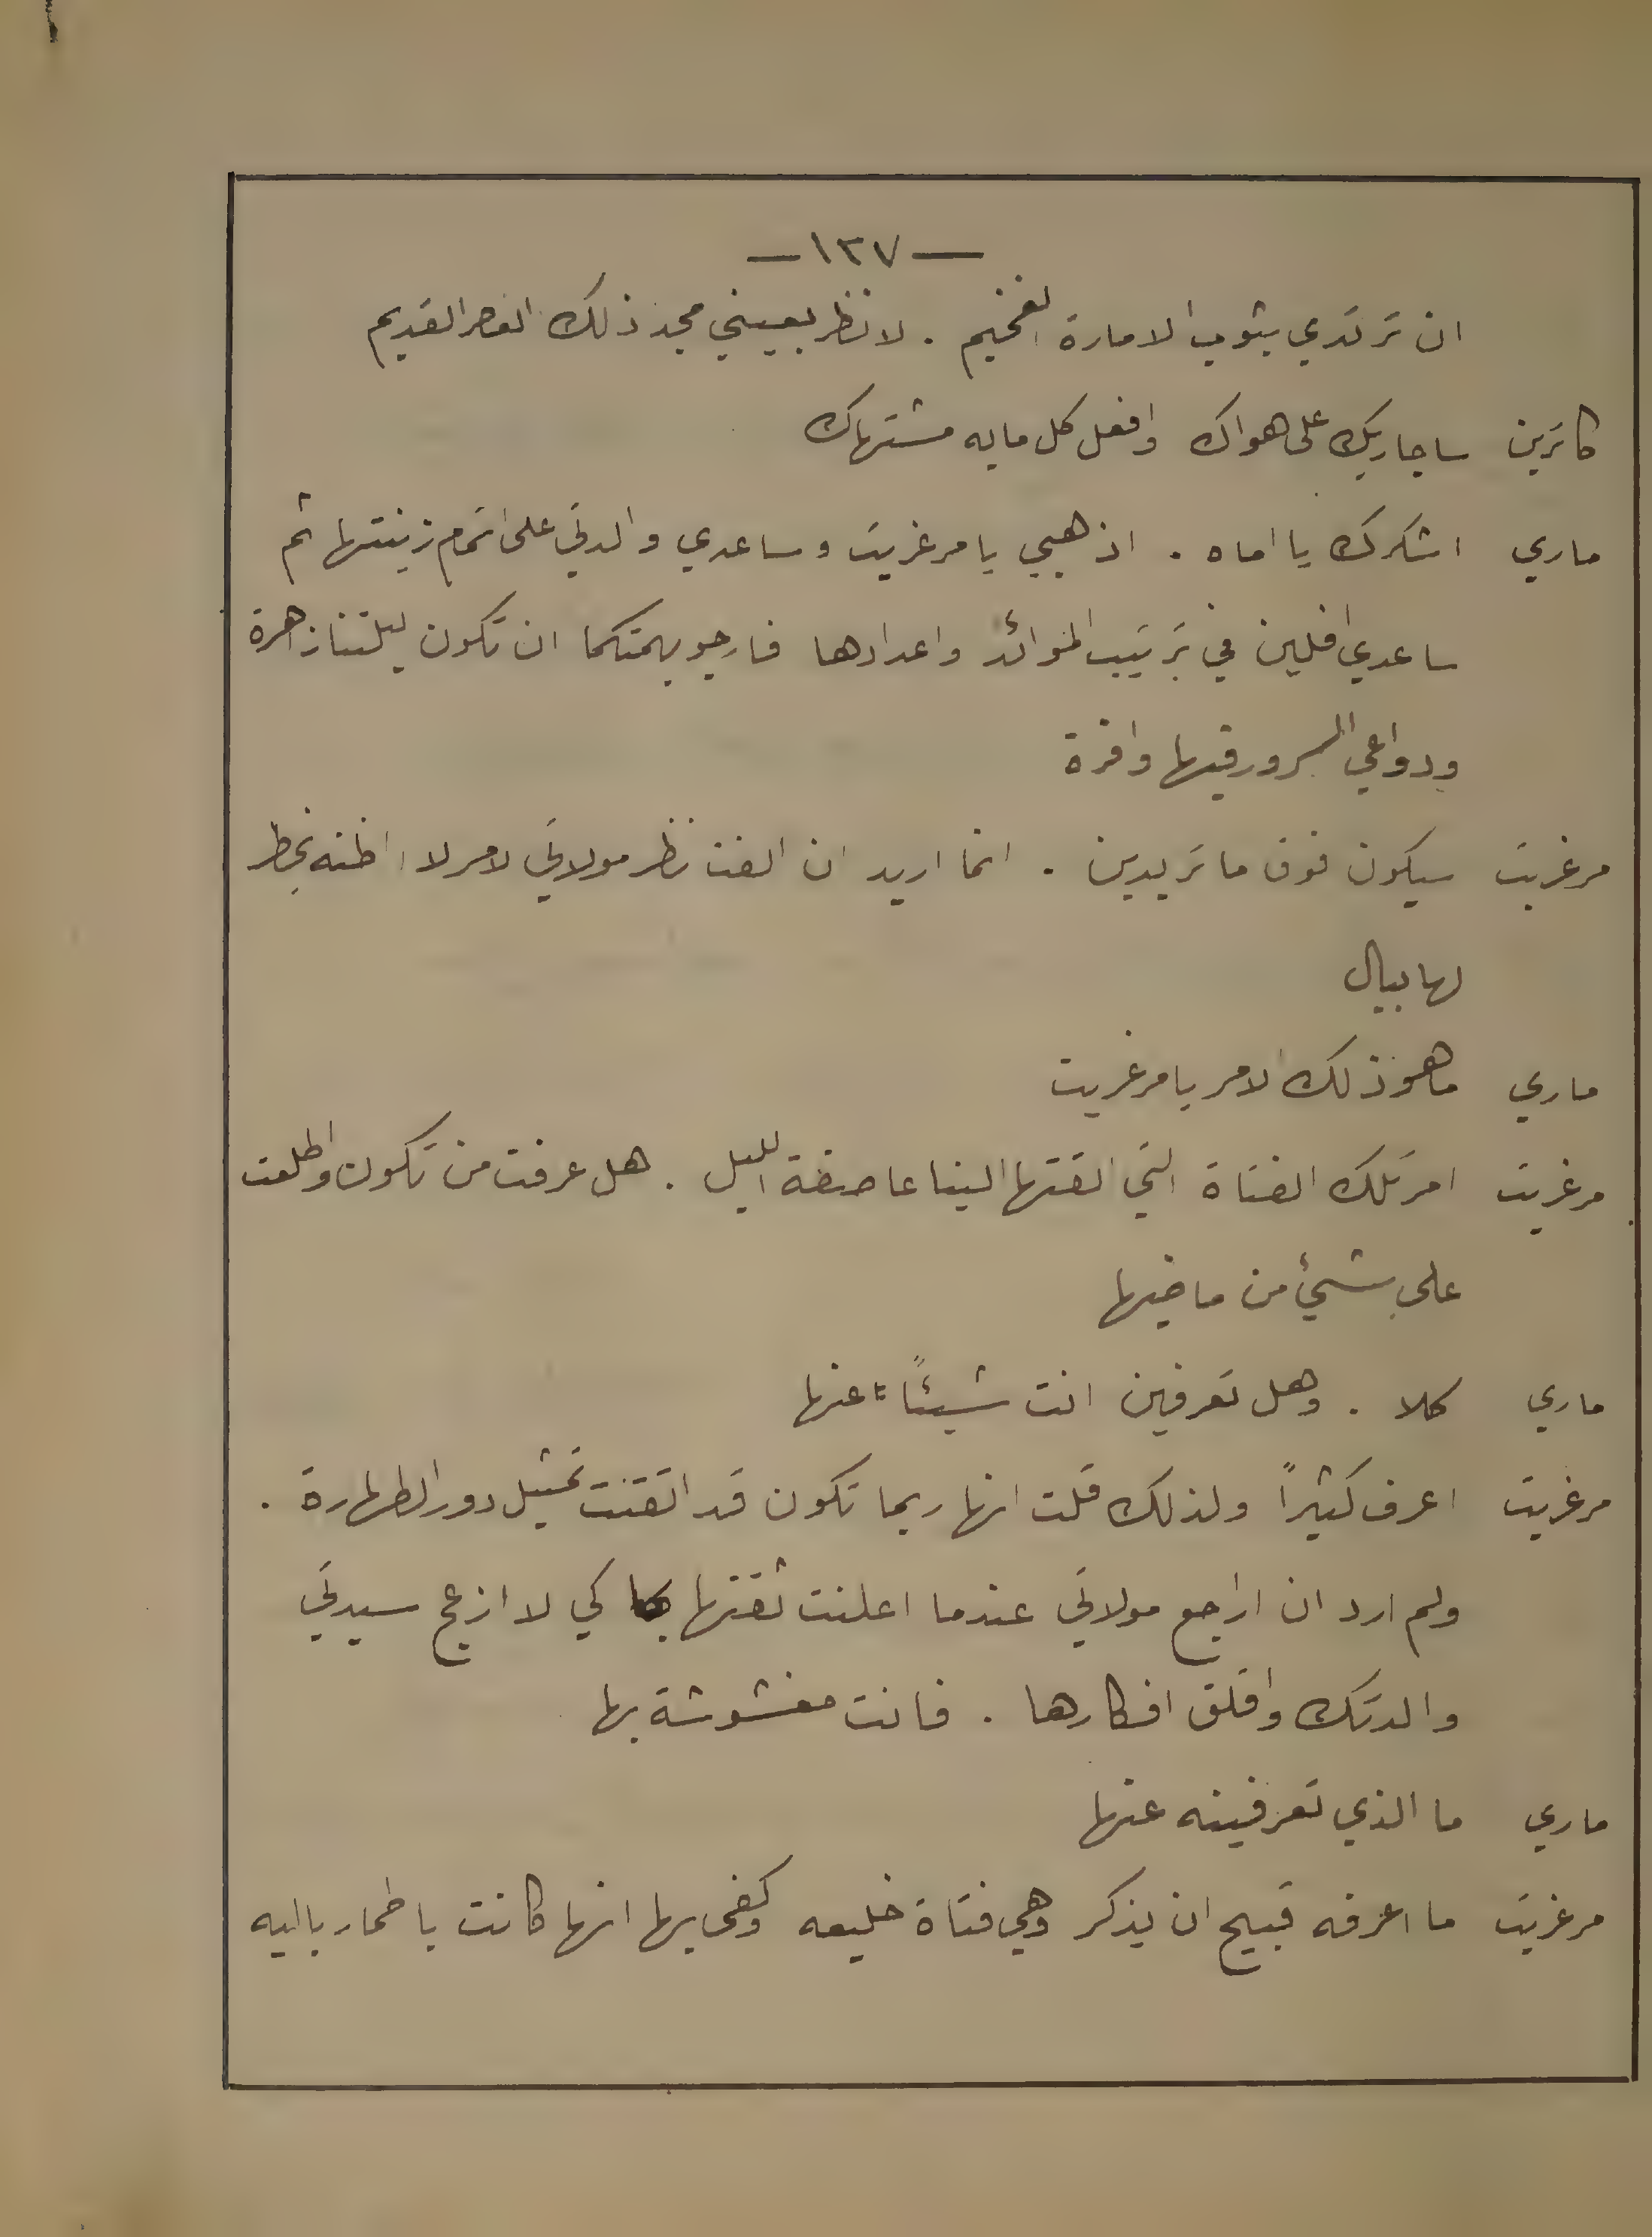 — ١٣٧ —
ان ترتدي بثوب الامارة الفخيم . لانظر بعيني مجد ذلك العصر القديم
كاترين ساجاريك على هواك وافعل كل مابه مشتهاك
ماري اشكرك يا اماه . اذهبي يا مرغريت وساعدي والدتي على اتمام زينتها ثم
ساعدي افلين في ترتيب الموائد واعدادها فارجو بهمتكما ان تكون ليلتنا زاهرة
ودواعي السرور فيها وافرة
مرغريت سيكون فوق ما تريدين . انما اريد ان الفت نظر مولاتي لامر لا اظنه يخطر
لها ببال
ماري ما هو ذلك الامر يا مرغريت
مرغريت امر تلك الفتاة التي القتها الينا عاصفة الليل . هل عرفت من تكون واطلعت
على شيء من ماضيها
ماري كلا . وهل تعرفين انت شيئاً عنها
مرغريت اعرف كثيراً ولذلك قلت انها ربما تكون قد اتقنت تمثيل دور الطهارة .
ولم ارد ان اراجع مولاتي عندما اعلنت ثقتها بها كي لا ازعج سيدتي
والدتك واقلق افكارها . فانت مغشوشة بها
ماري ما الذي تعرفينه عنها
مرغريت ما اعرفه قبيح ان يذكر وهي فتاة خليعه وكفى بها انها كانت باطمار باليه